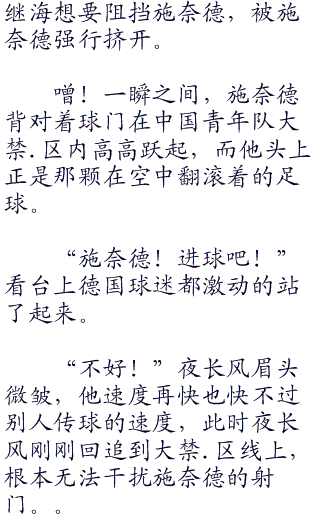 继海想要阻挡施奈德，被施
奈德强行挤开。
噌！一瞬之间，施奈德
背对着球门在中国青年队大
禁.区内高高跃起，而他头上
正是那颗在空中翻滚着的足
球。
“施奈德！进球吧！”
看台上德国球迷都激动的站
了起来。
“不好！”夜长风眉头
微皱，他速度再快也快不过
别人传球的速度，此时夜长
风刚刚回追到大禁.区线上，
根本无法干扰施奈德的射
门。。